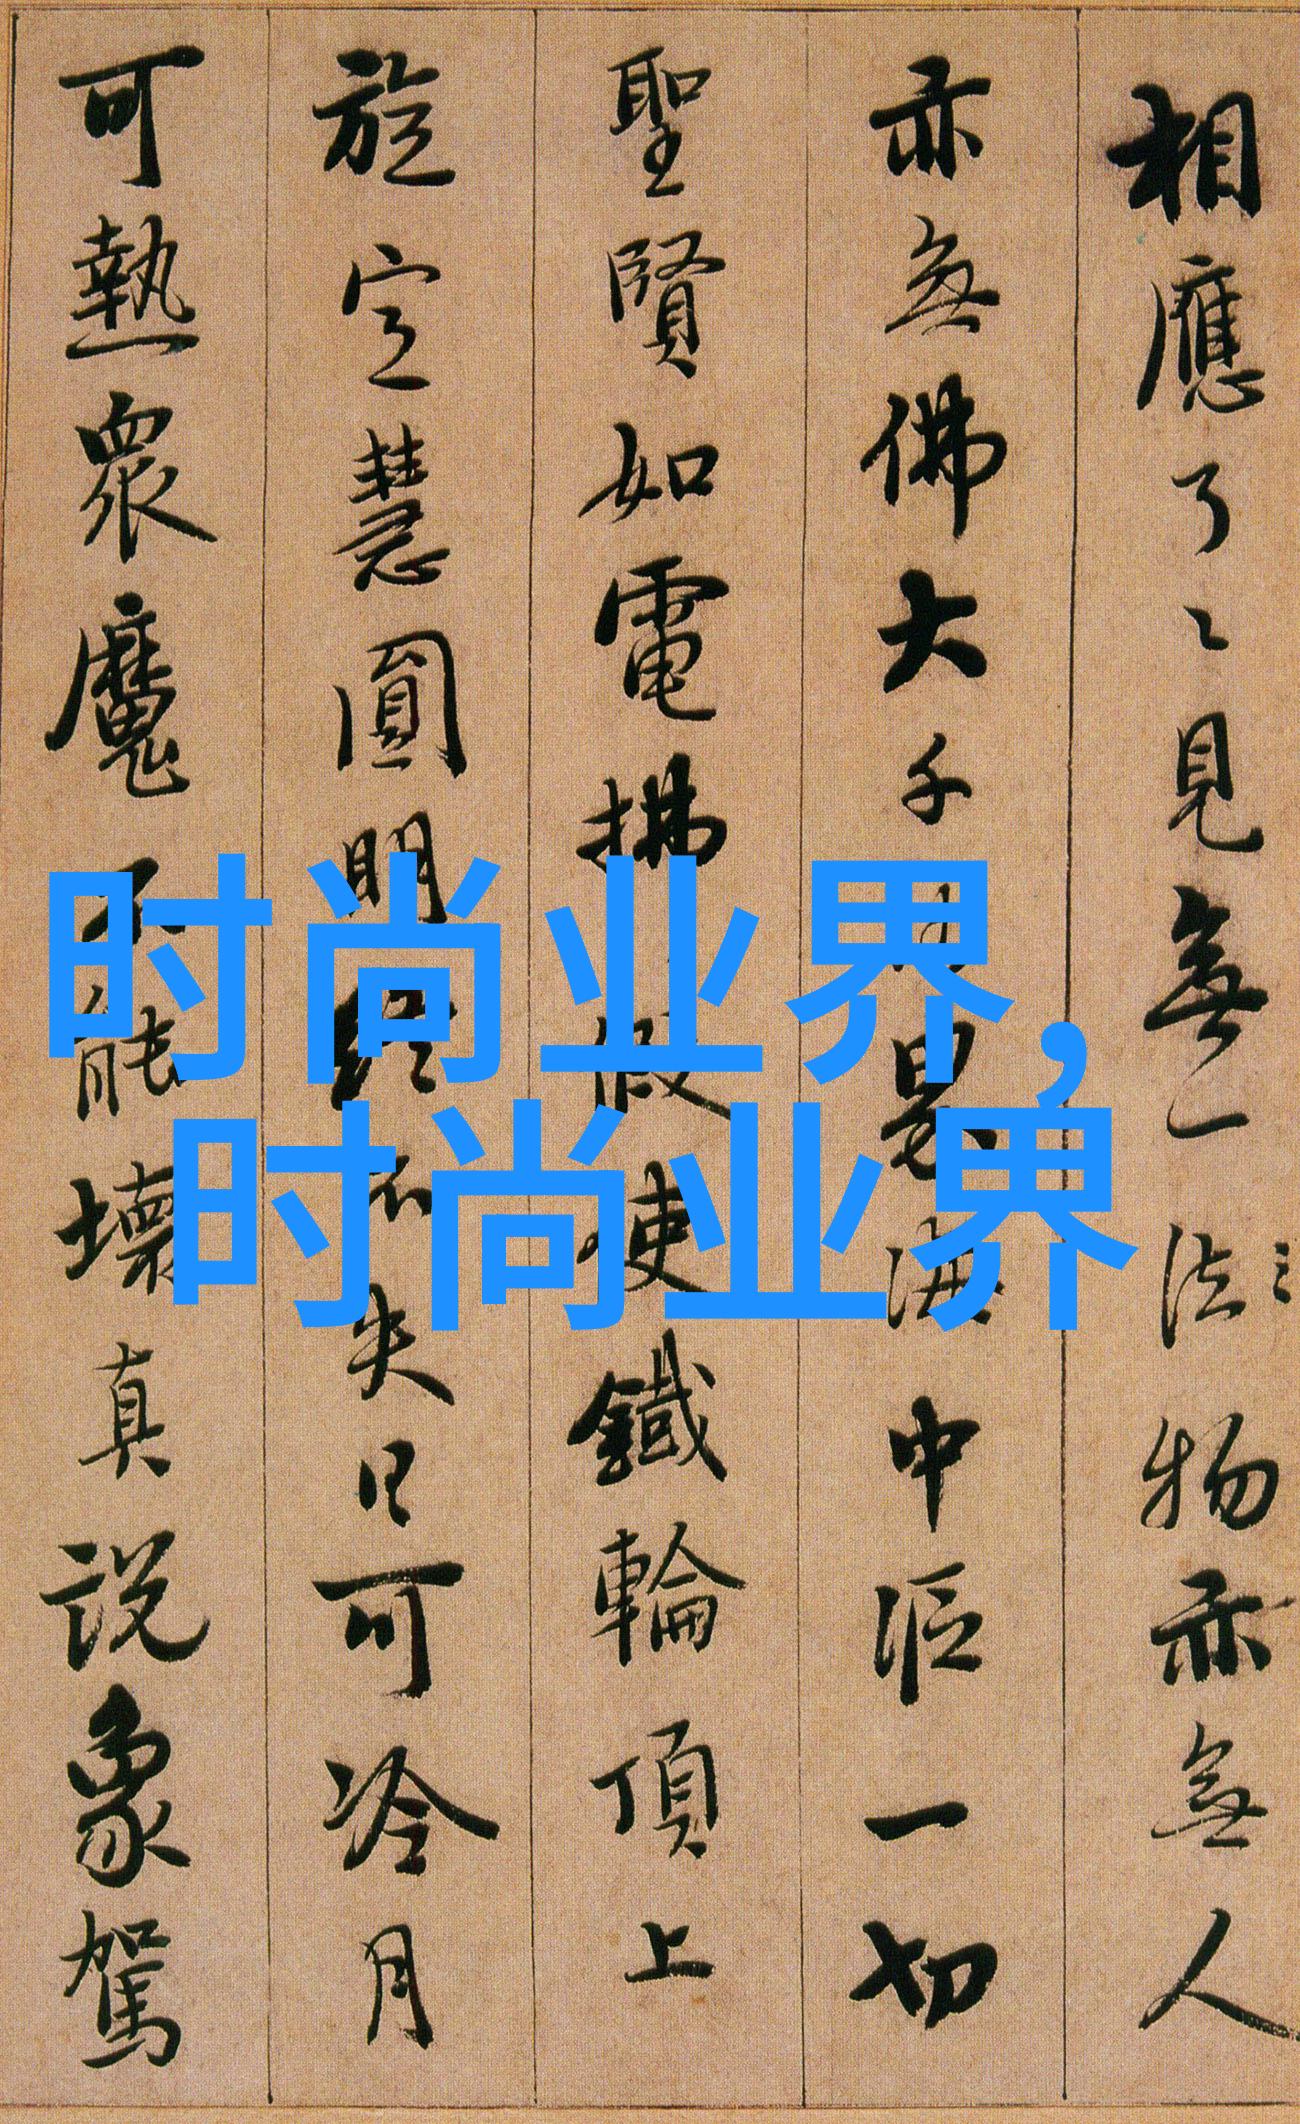 相應了〻見無一法物亦無人
亦無佛大千沙界海中漚一切
聖賢如電拂假使鐵輪頂上
旋定慧圓明終不失日可冷月
可熱眾魔不能壞真說象駕
时尚业界，
时尚业界